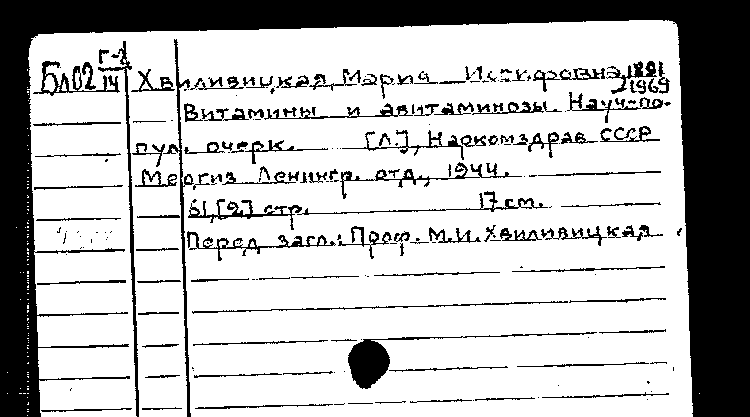 Бл02 Г-2/14 Хвиливицкая, Мария Иосифовна, 1891
1969
Витамины и авитаминозы. Науч-по-
пул. очерк. [Л.], Наркомздрав СССР
Медгиз Ленингр. отд., 1944.
61,[2] стр. 17 см.
Перед загл.: Проф. М.И. Хвиливицкая